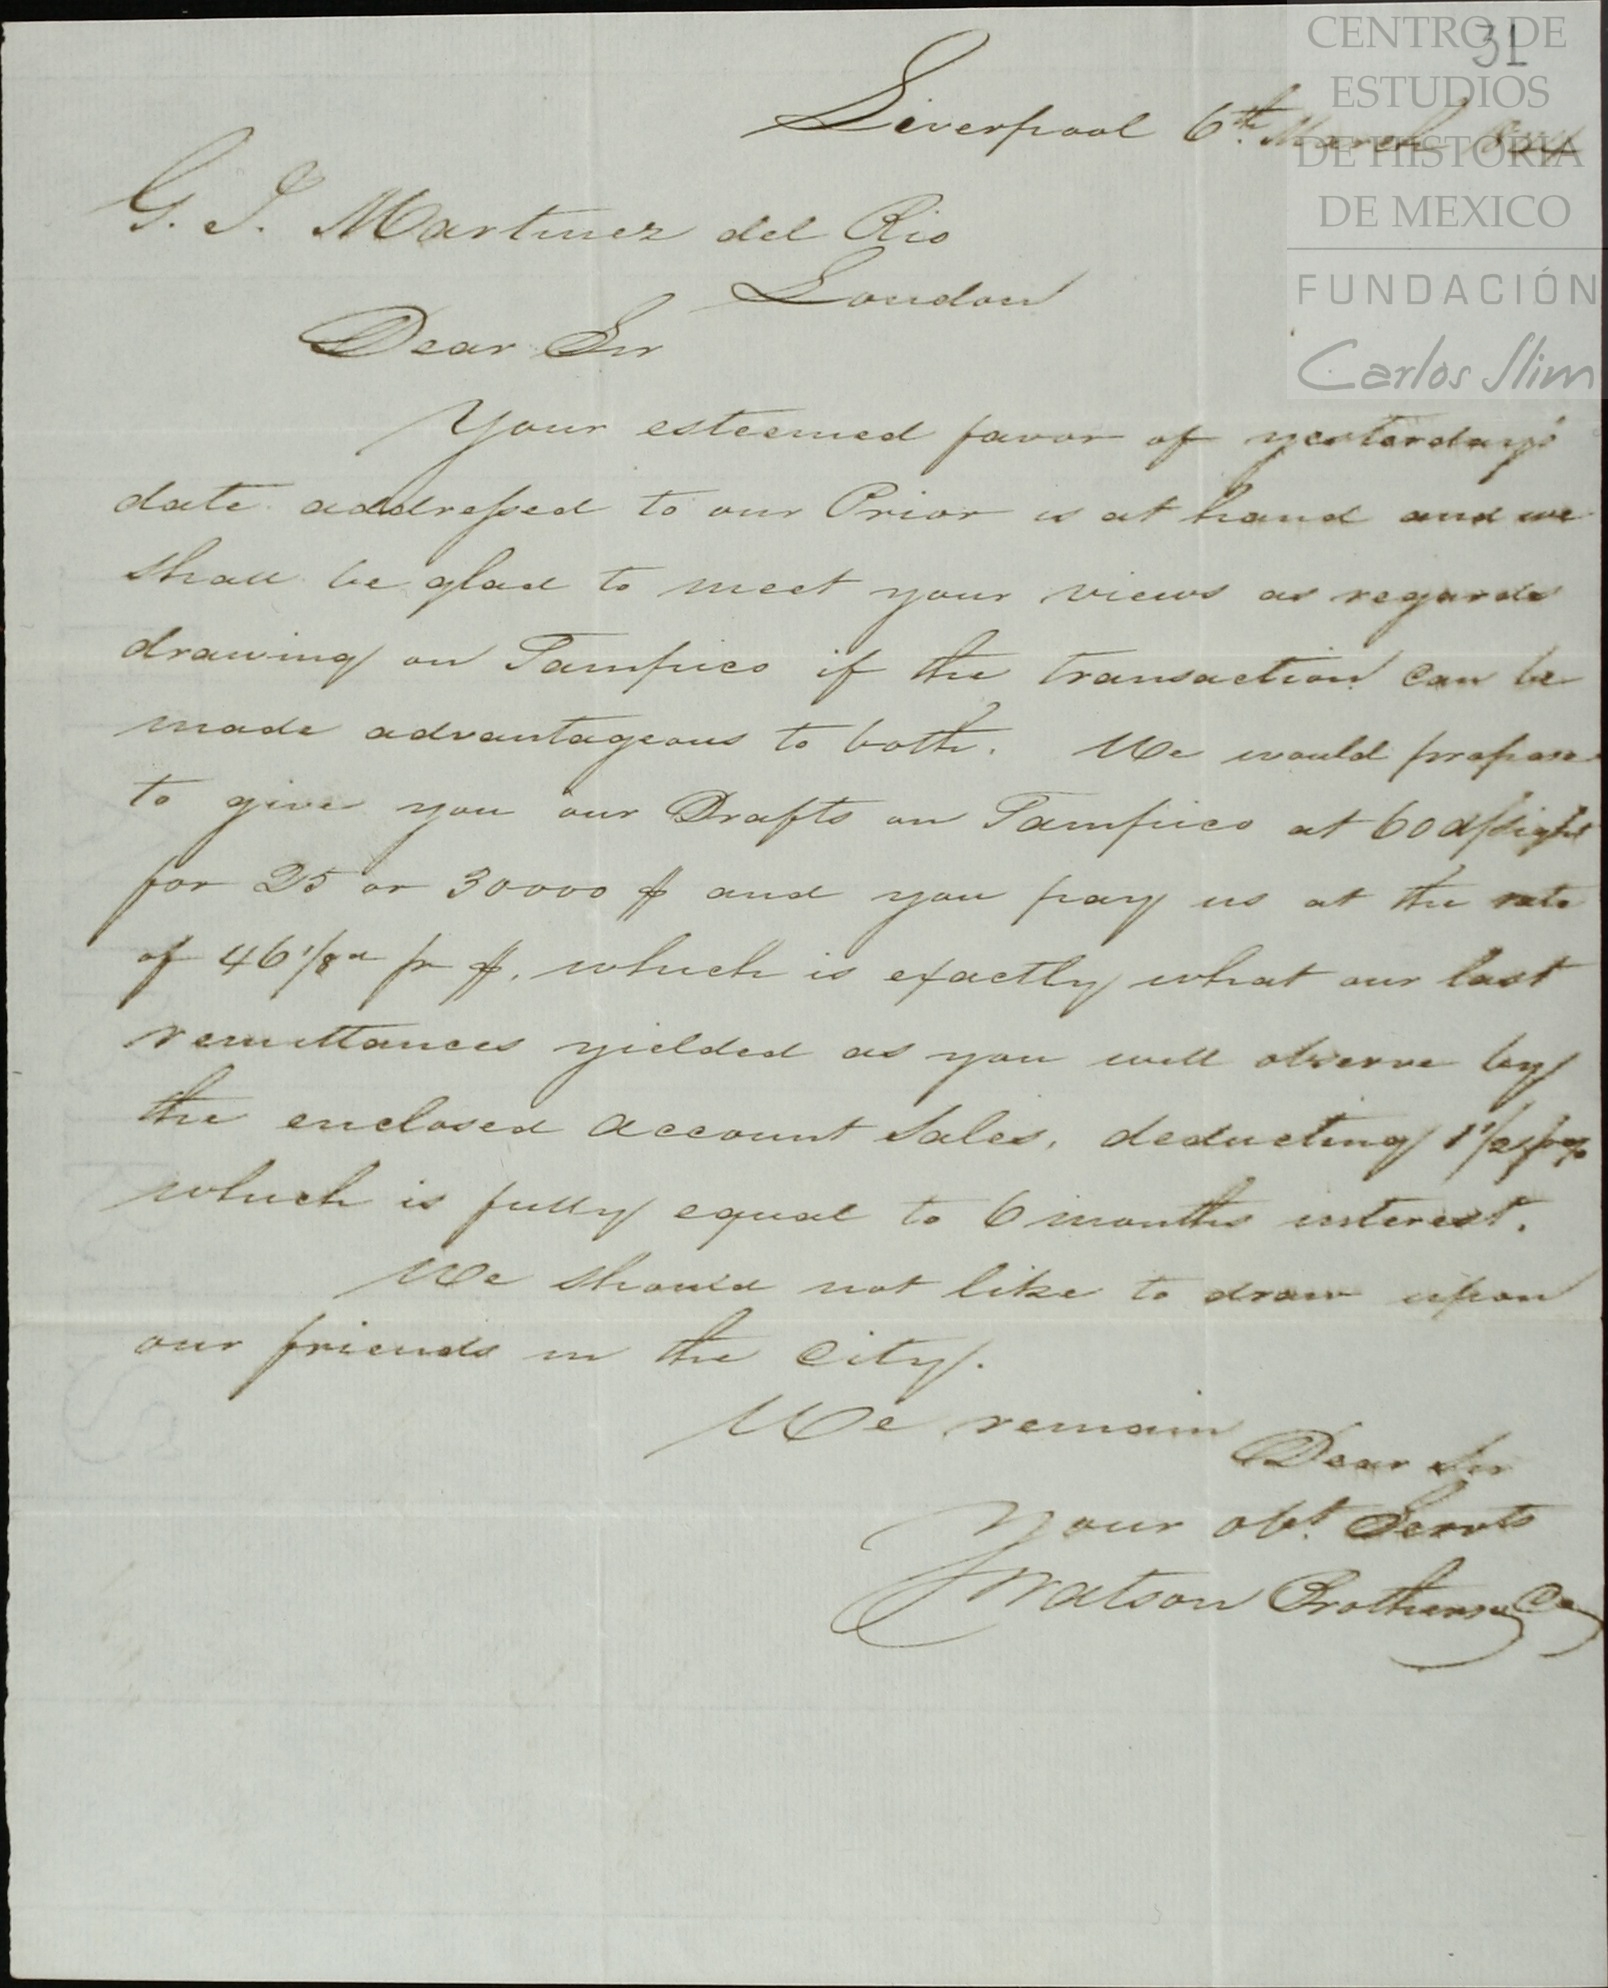 31
CENTRO DE
ESTUDIOS
DE HISTORIA
DE MEXICO
FUNDACIÓN
Carlos Slim
Liverpool 6th. March
G. J. Martinez del Rio
London
Dear Sir
Your esteemed favor of yesterday's
date addressed to our Prior is at hand and we
shall be glad to meet your views as regards
drawing on Tampico if the transaction can be
made advantageous to both. We would propose
to give you our Drafts on Tampico at 60 d/sight
for 25 or 30000 $ and you pay us at the rate
of 46 1/8 d pr $, which is exactly what our last
remittances yielded as you will observe by
the enclosed account Sales, deducting 1 1/2 pr %
which is fully equal to 6 months interest.
We should not like to draw upon
our friends in the City.
We remain
Dear Sir
Your obt. Servts
Watson Brothers & Co